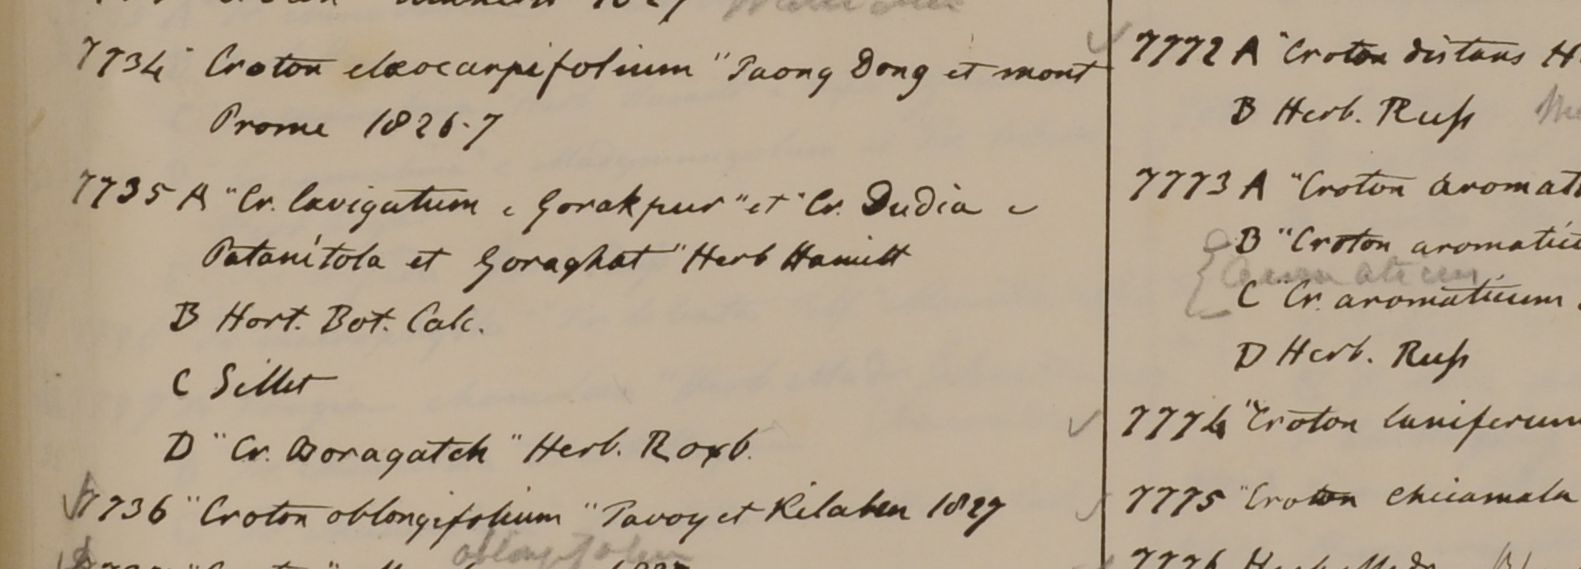 7734 "Croton elæocarpifolium" Taong Dong et mont
Prome 1826-7
7735 A "Cr. lævigatum e Gorakpur" et "Cr. Dudia e
Patanitola et Goraghat" Herb Hamilt
B Hort. Bot. Calc.
C Sillet
D "Cr. Boragatch" Herb. Roxb.
7736 "Croton oblongifolium" Tavoy et 1827
oblongifolium
7772 A "Croton distans H
B Herb. Russ
7773 A "Croton aromati
B "Croton aromatic
aromaticum
C "Cr. aromaticum
D Herb. Russ
7774 "Croton
7775 "Croton
7776